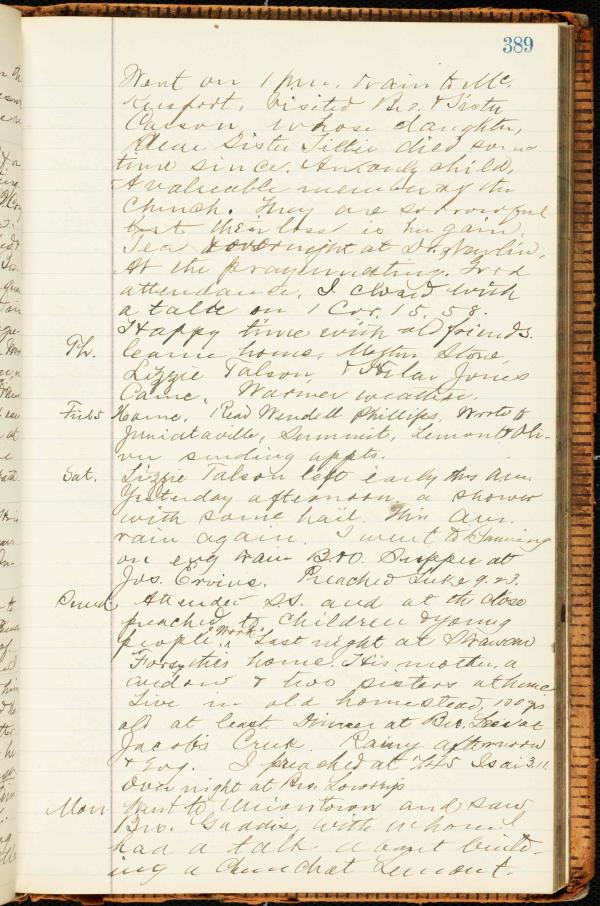 389
Went on 1 p.m. train to Mc.
Keesport, Visited Bro. & Sister
Carson whose daughter,
Dear Sister Tillie died some
time since. An only child,
A valuable member of the
Church. They are sorrowful
but their loss is her gain.
Tea & over night at Dr.
At the prayermeeting. Good
attendance. I closed with
a talk on 1 Cor. 15. 58.
Happy time with old friends.
Th. home, Stone,
Lizzie Talson, & Jones
Came, Warmer weather.
Home. Read Wendell Phillips. Wrote to
Summit, Lemont & Oli-
ver sending appts.
Sat. Lizzie Talson left early this a.m.
Yesterday afternoon a shower
with some hail. This a.m.
rain again. I went to Banning
on evg train B & O. Supper at
Jos. Ervins. Preached Luke 9.23.
Attended S.S. and at the close
preached to Children & young
people. Work. Last night at Strawn
home. His mother, a
widow & two sisters at home
Live in old homestead, 100 yrs
old at least. Dinner at Bro.
Jacobs Creek. Rainy afternoon
& Evg. I preached at 7.45 Isai 3.11
Over night at Bro.
Mon Went to Uniontown and saw
Bro. Gaddis, with whom I
had a talk about build-
ing a Church at Lemont.